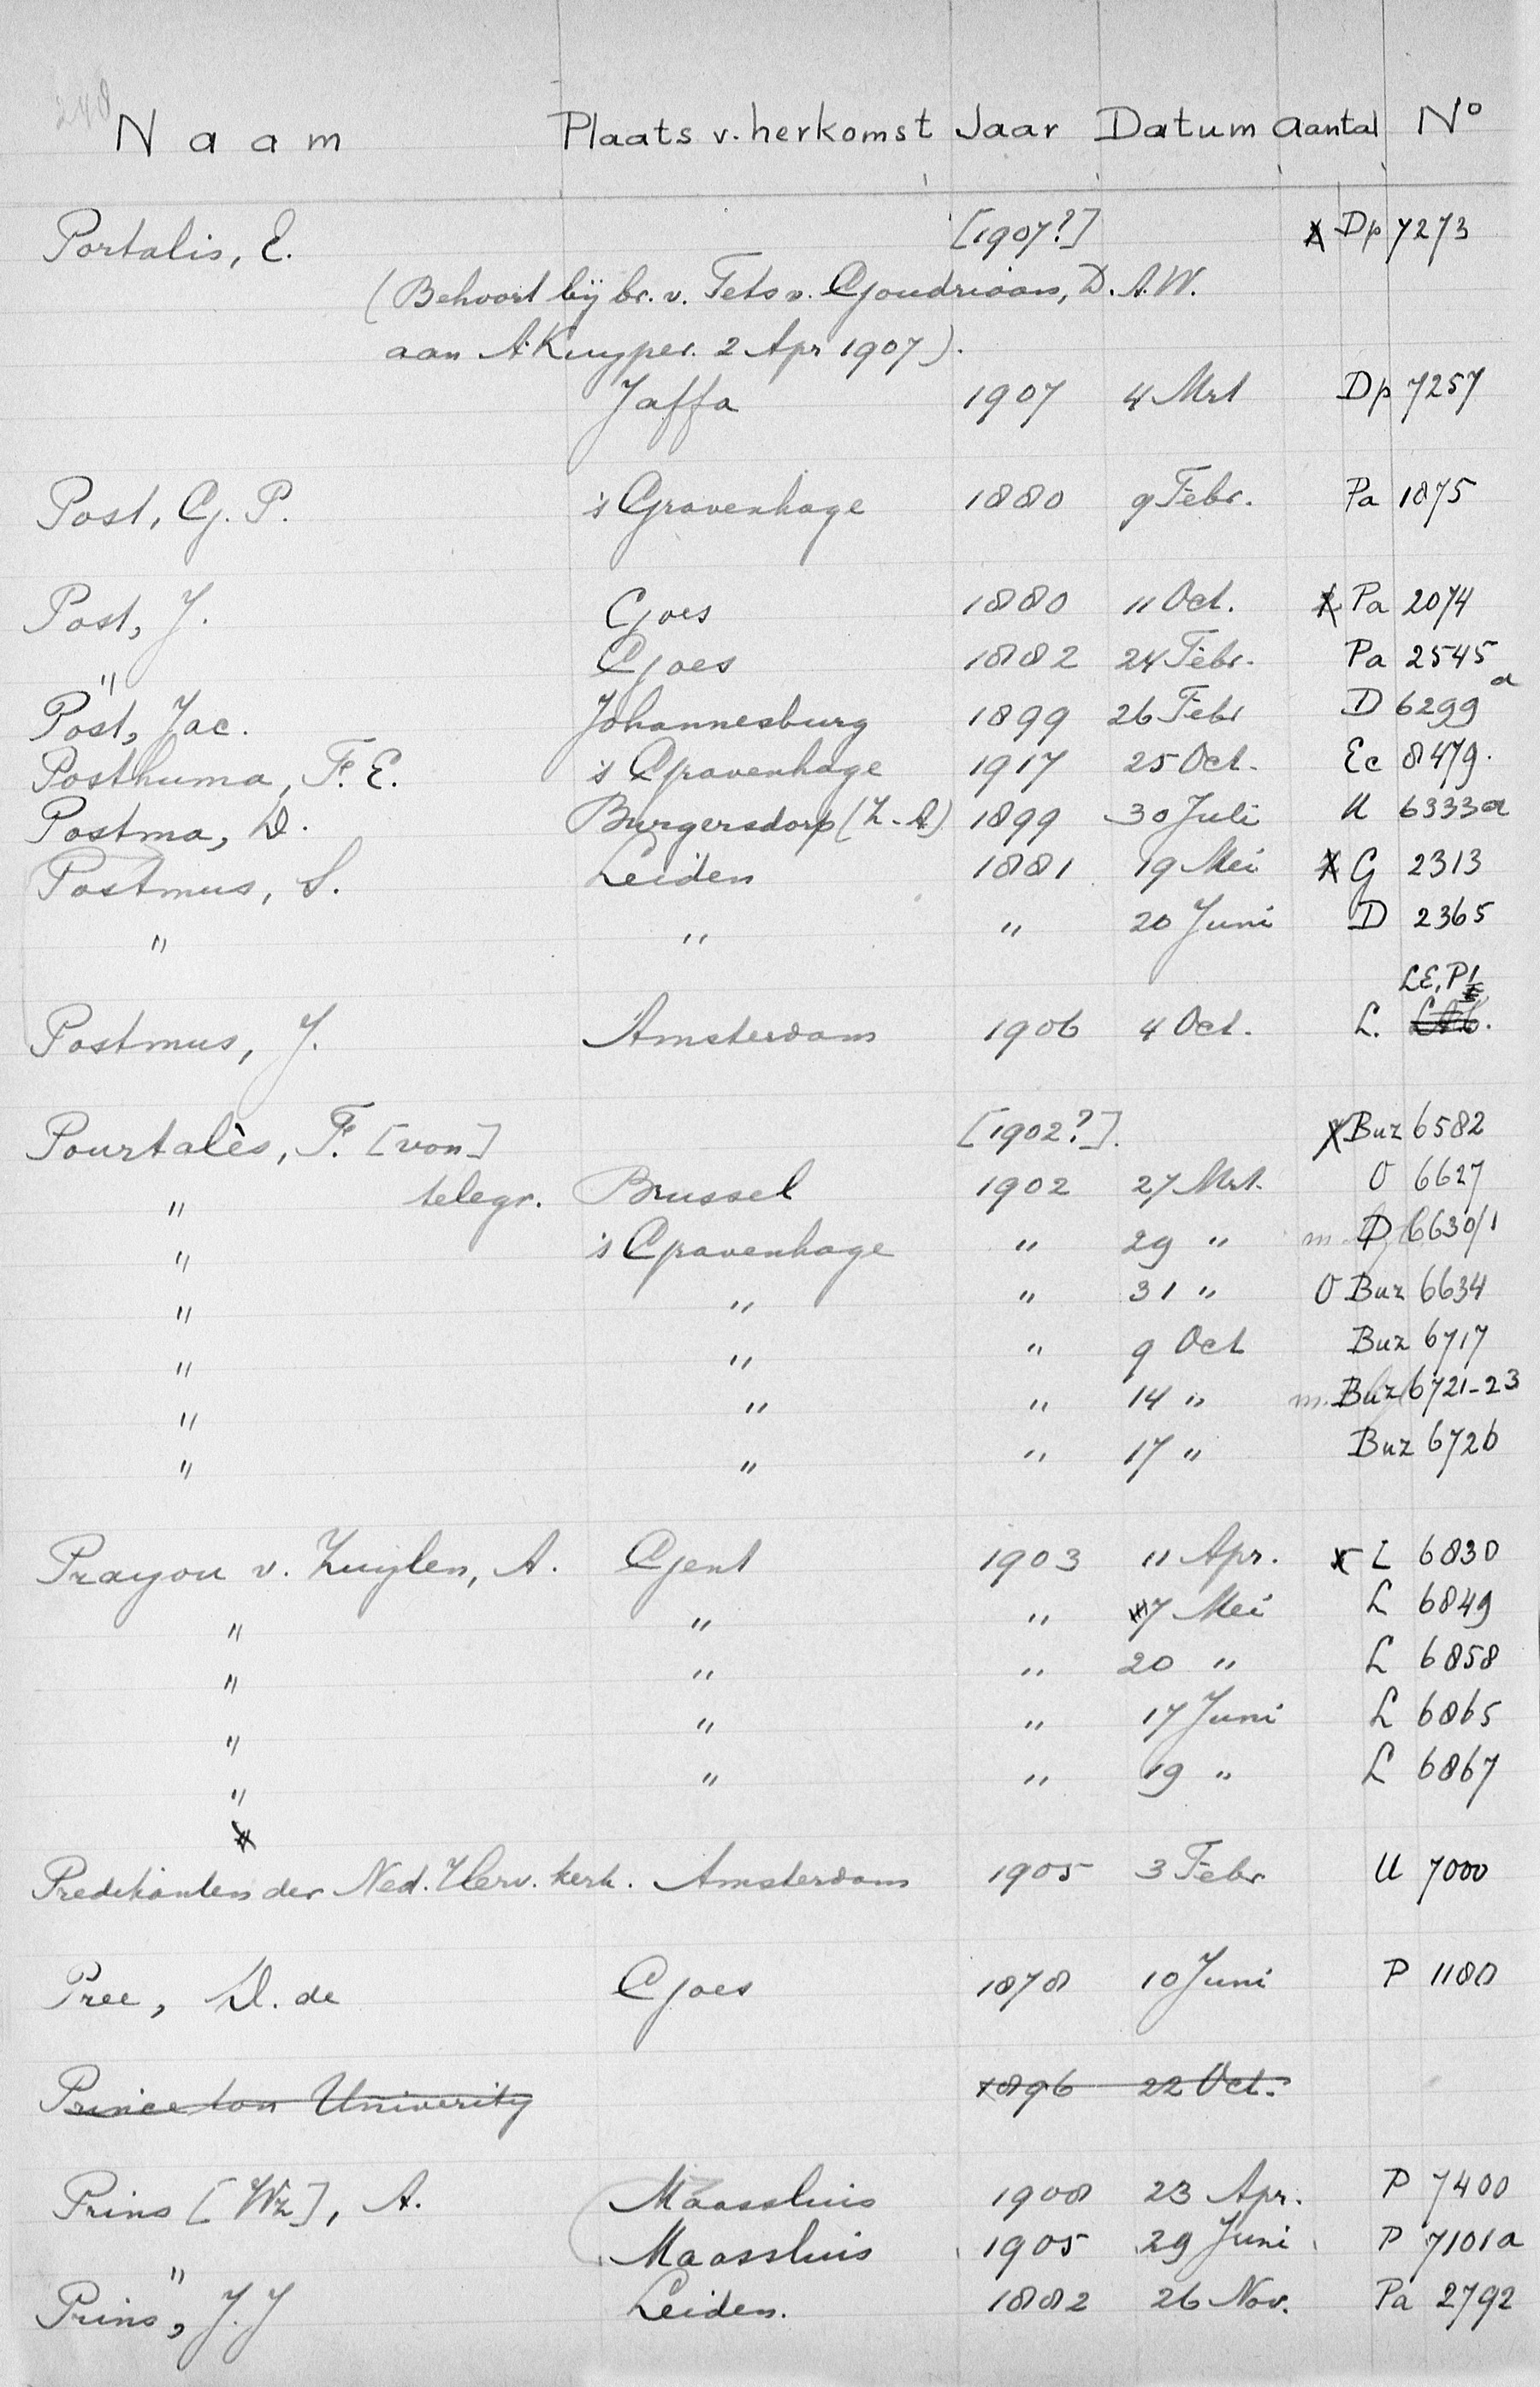 240
Naam Plaats v. herkomst Jaar Datum Aantal No
Portalis, E. [1907?] Dp 7273
(Behoort bij br. v. Tets v. Goudriaan, D.A.W.
aan A. Kuyper. 2 Apr 1907).
Jaffa 1907 4 Mrt Dp 7257
Post, G. P. 's Gravenhage 1880 9 Febr. Pa 1875
Post, J. Goes 1880 11 Oct. Pa 2074
" Goes 1882 24 Febr. Pa 2545
Post, Jac. Johannesburg 1899 26 Febr D 6299a
Posthuma, F. E. 's Gravenhage 1917 25 Oct. Ec 8479.
Postma, D. Burgersdorp (Z.-A) 1899 30 Juli U 6333a
Postmus, S. Leiden 1881 19 Mei G 2313
" " " 20 Juni D 2365
LE, P1
Postmus, J. Amsterdam 1906 4 Oct. L.
Pourtalès, F. [von] [1902?]. Buz 6582
" telegr. Brussel 1902 27 Mrt. O 6627
" 's Gravenhage " 29 " D 6630/1
" " " 31 " O Buz 6634
" " " 9 Oct Buz 6717
" " " 14 " Buz 6721-23
" " " 17 " Buz 6726
Prayon v. Zuylen, A. Gent 1903 11 Apr. L 6830
" " " 7 Mei L 6849
" " " 20 " L 6858
" " " 17 Juni L 6865
" " " 19 " L 6867
Predikanten der Ned. Herv. kerk. Amsterdam 1905 3 Febr U 7000
Pree, D. de Goes 1878 10 Juni P 1180
Princeton Univerity 1896 22 Oct.
Prins [Wz], A. Maassluis 1908 23 Apr. P 7400
" Maassluis 1905 29 Juni P 7101a
Prins, J. J Leiden. 1882 26 Nov. Pa 2792